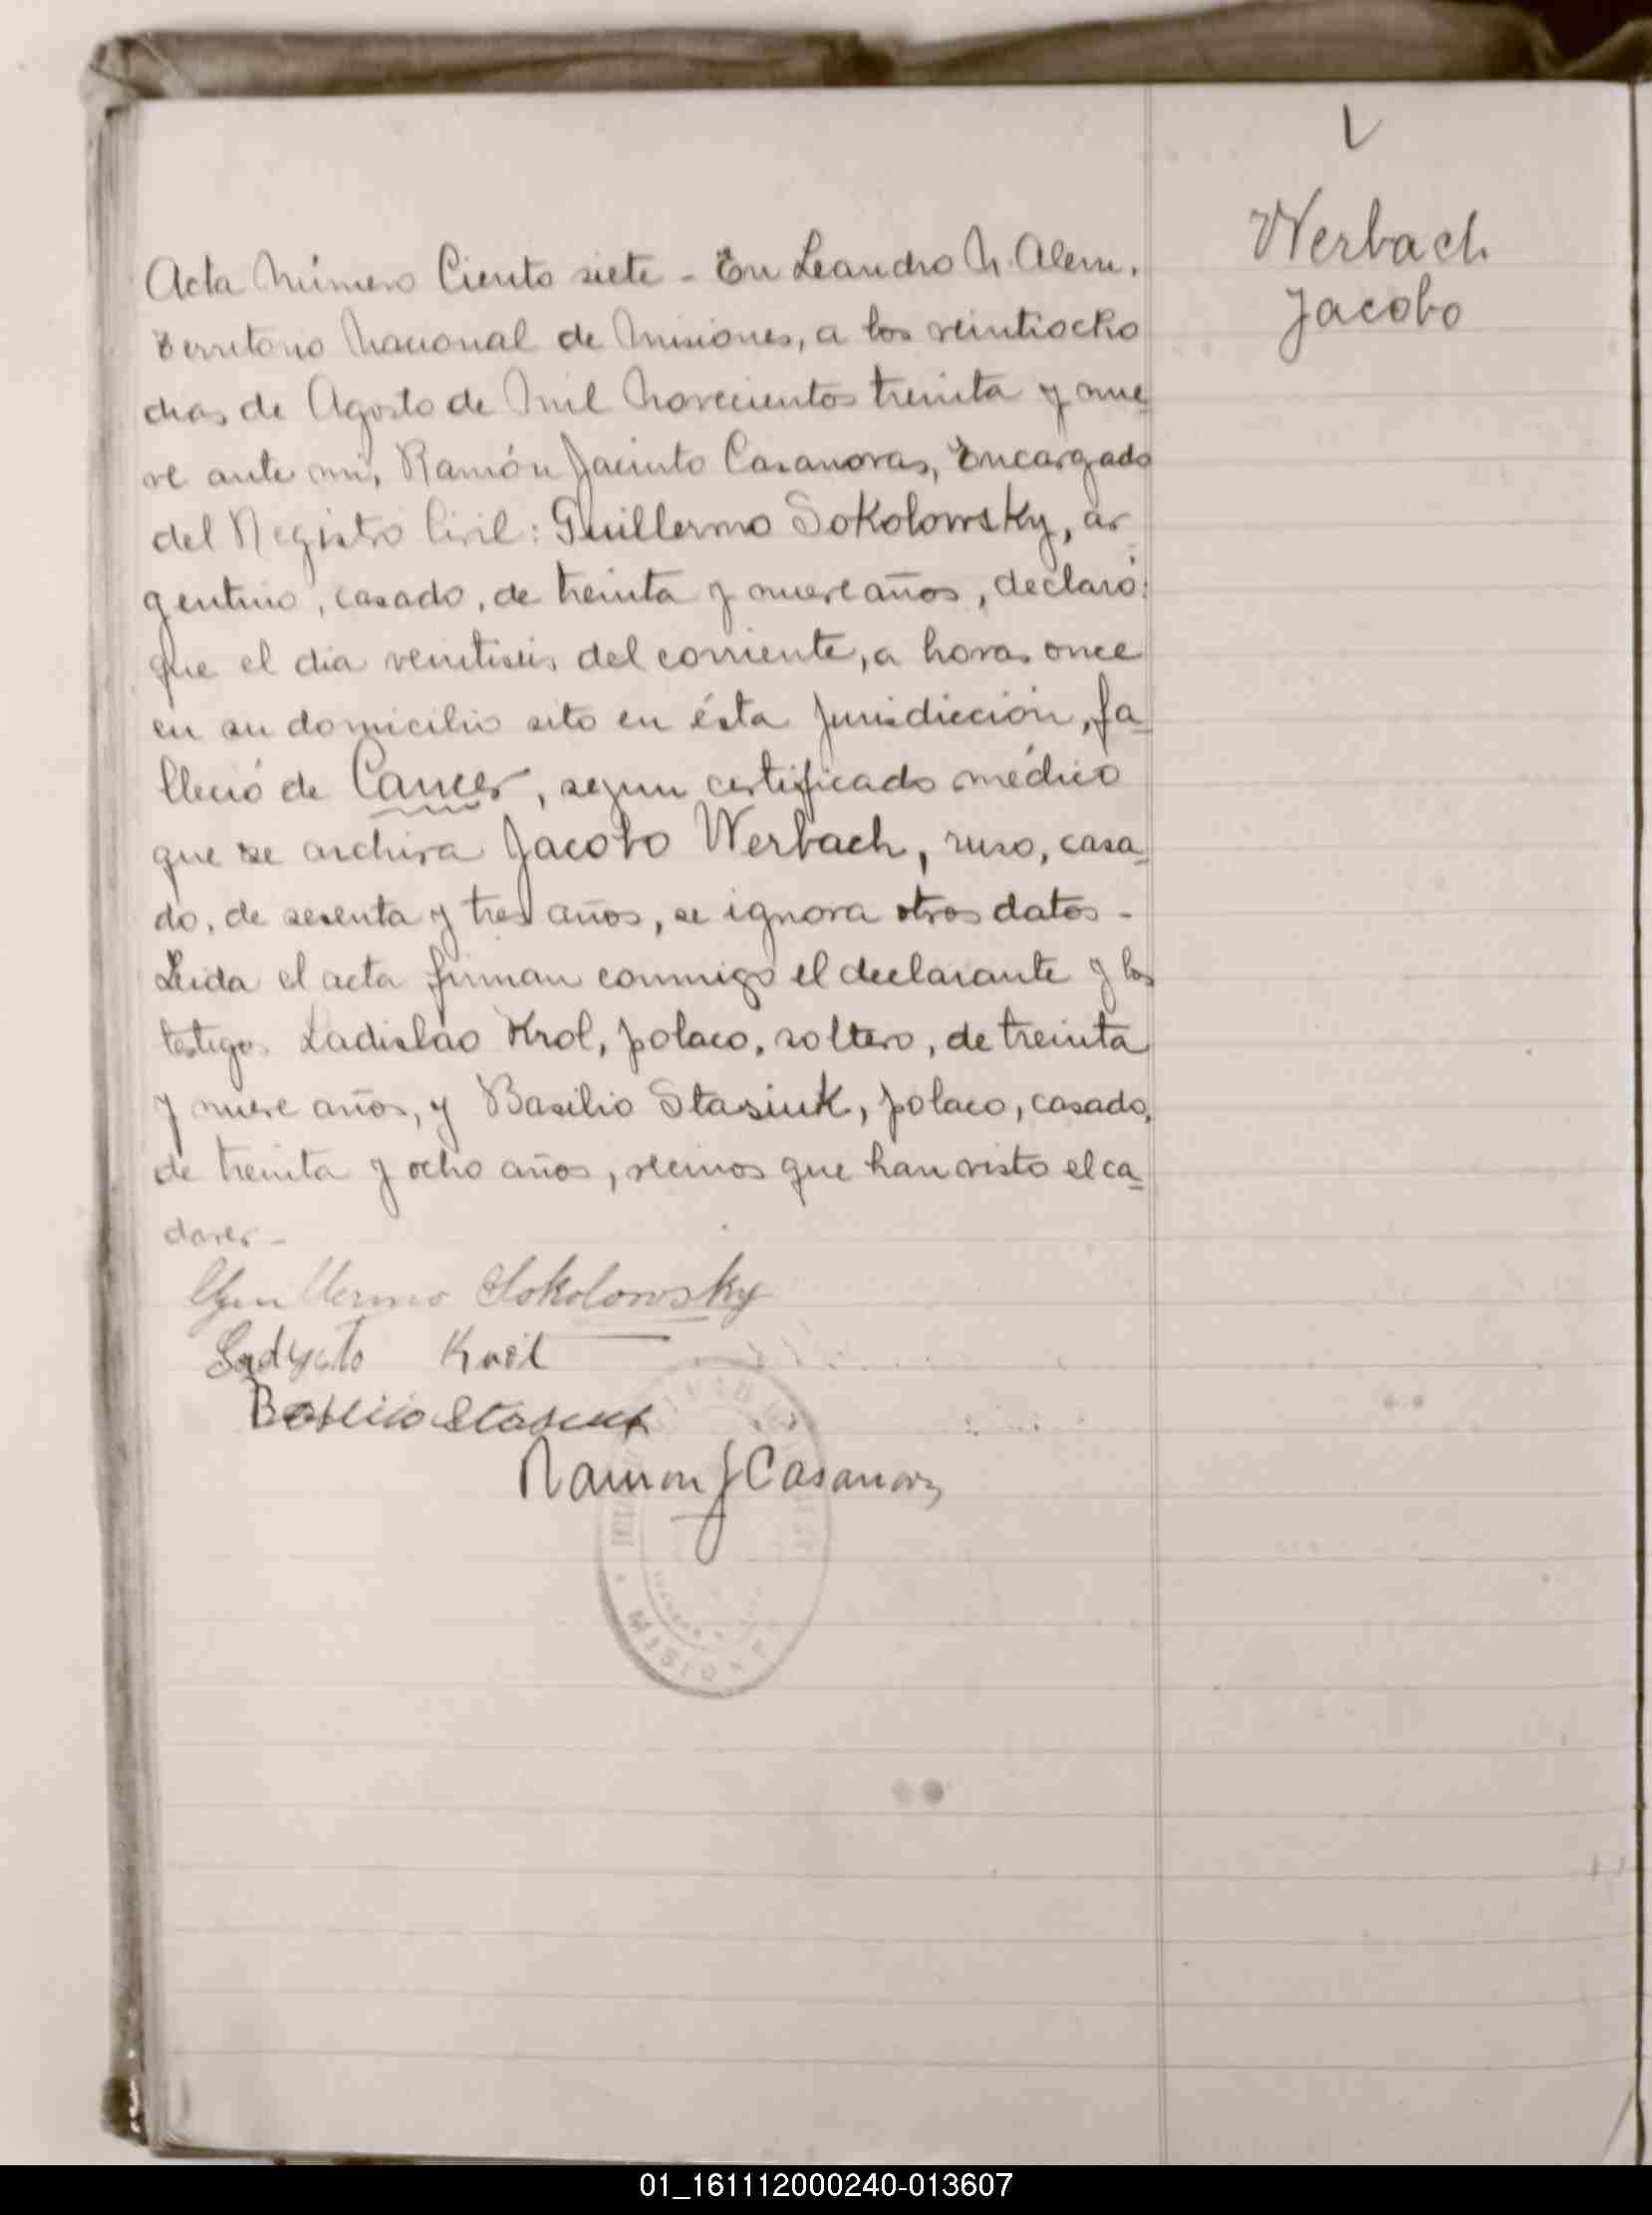 Werbach
Jacobo
Acta Número Ciento siete - En Leandro N. Alem,
Territorio Nacional de Misiones, a los veintiocho
dias de Agosto de Mil Novecientos treinta y nue-
ve ante mi, Ramón Jacinto Casanovas, Encargado
del Registro Civil: Guillermo Sokolowsky, ar-
gentino, casado, de treinta y nueve años, declaró:
que el dia veintiseis del corriente, a horas once
en su domicilio sito en ésta Jurisdicción, fa-
lleció de Cancer, segun certificado médico
que se archiva Jacobo Werbach, ruso, casa-
do, de sesenta y tres años, se ignora otros datos -
Leida el acta firman conmigo el declarante y los
testigos Ladislao Krol, polaco, soltero, de treinta
y nueve años, y Basilio Stasiuk, polaco, casado,
de treinta y ocho años, vecinos que han visto el ca-
daver -
Guillermo Sokolowsky
Krol
Basilio Stasiuk
Ramon J Casanovas
01_161112000240-013607